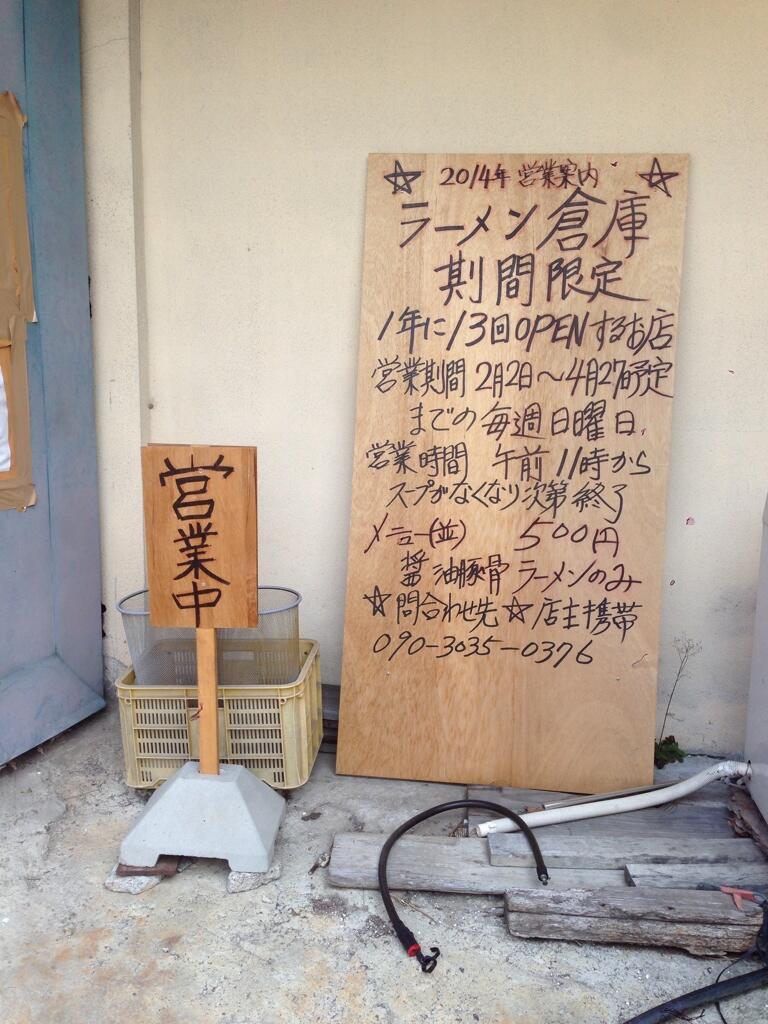 ☆ 2014年 営業案内 ☆
ラーメン倉庫
期間限定
1年に13回OPENするお店
営業期間 2月2日〜4月27日予定
までの毎週日曜日.
営業時間 午前11時から
スープがなくなり次第終了
メニュー(並) 500円
醤油豚骨ラーメンのみ
☆問合わせ先☆店主携帯
090-3035-0376
営業中